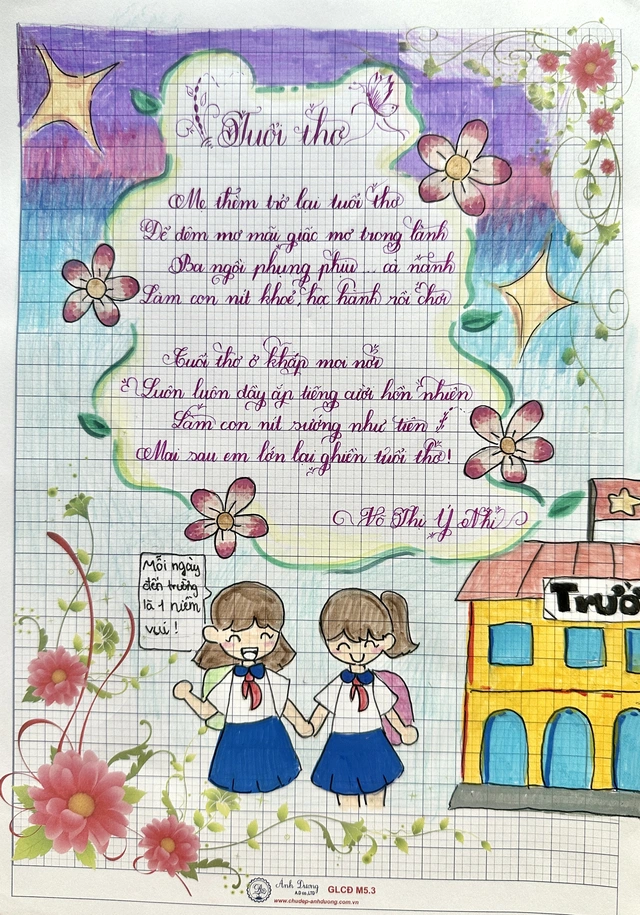 Tuổi thơ
Mẹ thèm trở lại tuổi thơ
Để đêm mơ mãi giấc mơ trong lành
Ba ngồi phụng phịu ... cà nanh
Làm con nít khoẻ, học hành rồi chơi
Tuổi thơ ở khắp mọi nơi
Luôn luôn đầy ắp tiếng cười hồn nhiên
Làm con nít sướng như tiên
Mai sau em lớn lại ghiền tuổi thơ!
Võ Thị Ý Nhi
Mỗi ngày
đến trường
là 1 niềm
vui!
Trườ
Anh Dương
A.D co.,LTD
GLCĐ M5.3
www.chudep-anhduong.com.vn